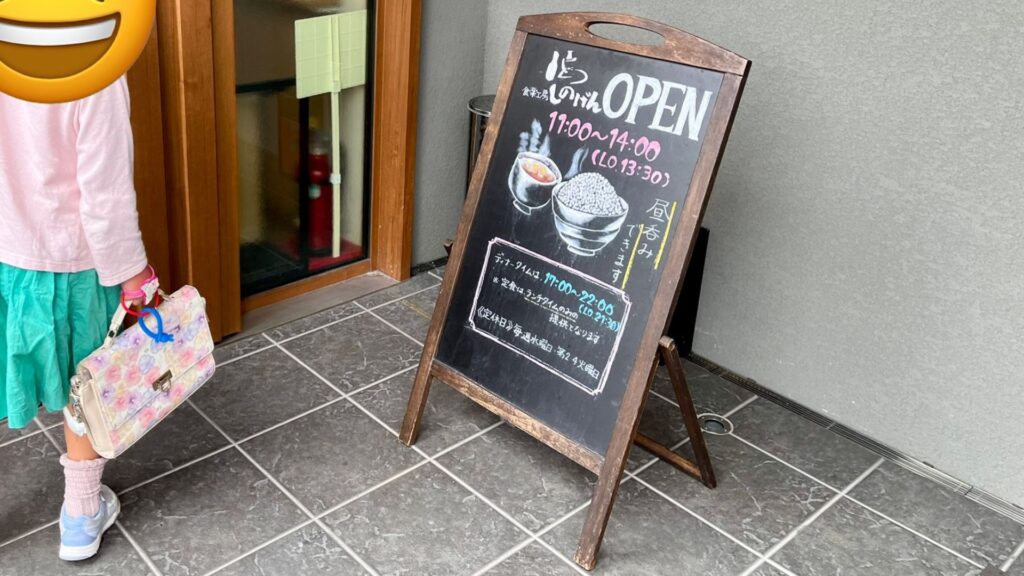 食楽工房
しのげん
OPEN
11:00〜14:00
(L.O.13:30)
昼呑み
できます
ディナータイムは 17:00〜22:00
(L.O 21:30)
※ 定食はランチタイムのみの
提供となります
《定休日》毎週水曜日・第2.4火曜日